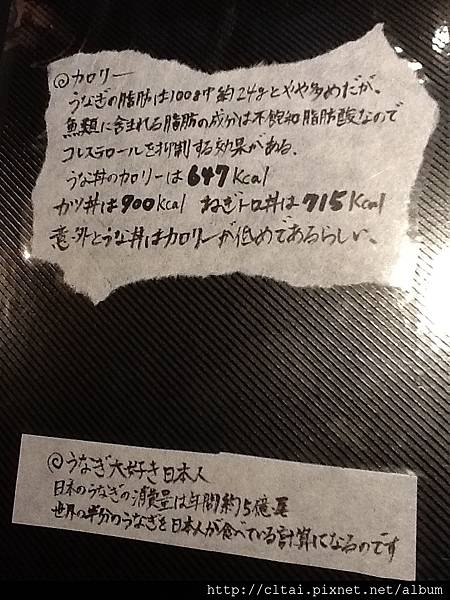 ◎カロリー
うなぎの脂肪は100g中約24gとやや多めだが、
魚類に含まれる脂肪の成分は不飽和脂肪酸なので
コレステロールを抑制する効果がある。
うな丼のカロリーは647Kcal
カツ丼は900kcal ねぎトロ丼は715Kcal
意外とうな丼はカロリーが低めであるらしい。
◎うなぎ大好き日本人
日本のうなぎの消費量は年間約5億尾
世界の半分のうなぎを日本人が食べている計算になるのです
http://cltai.pixnet.net/album